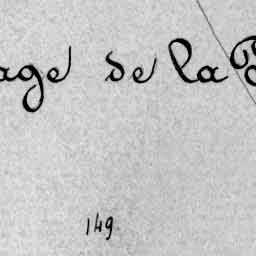 age de la B
149